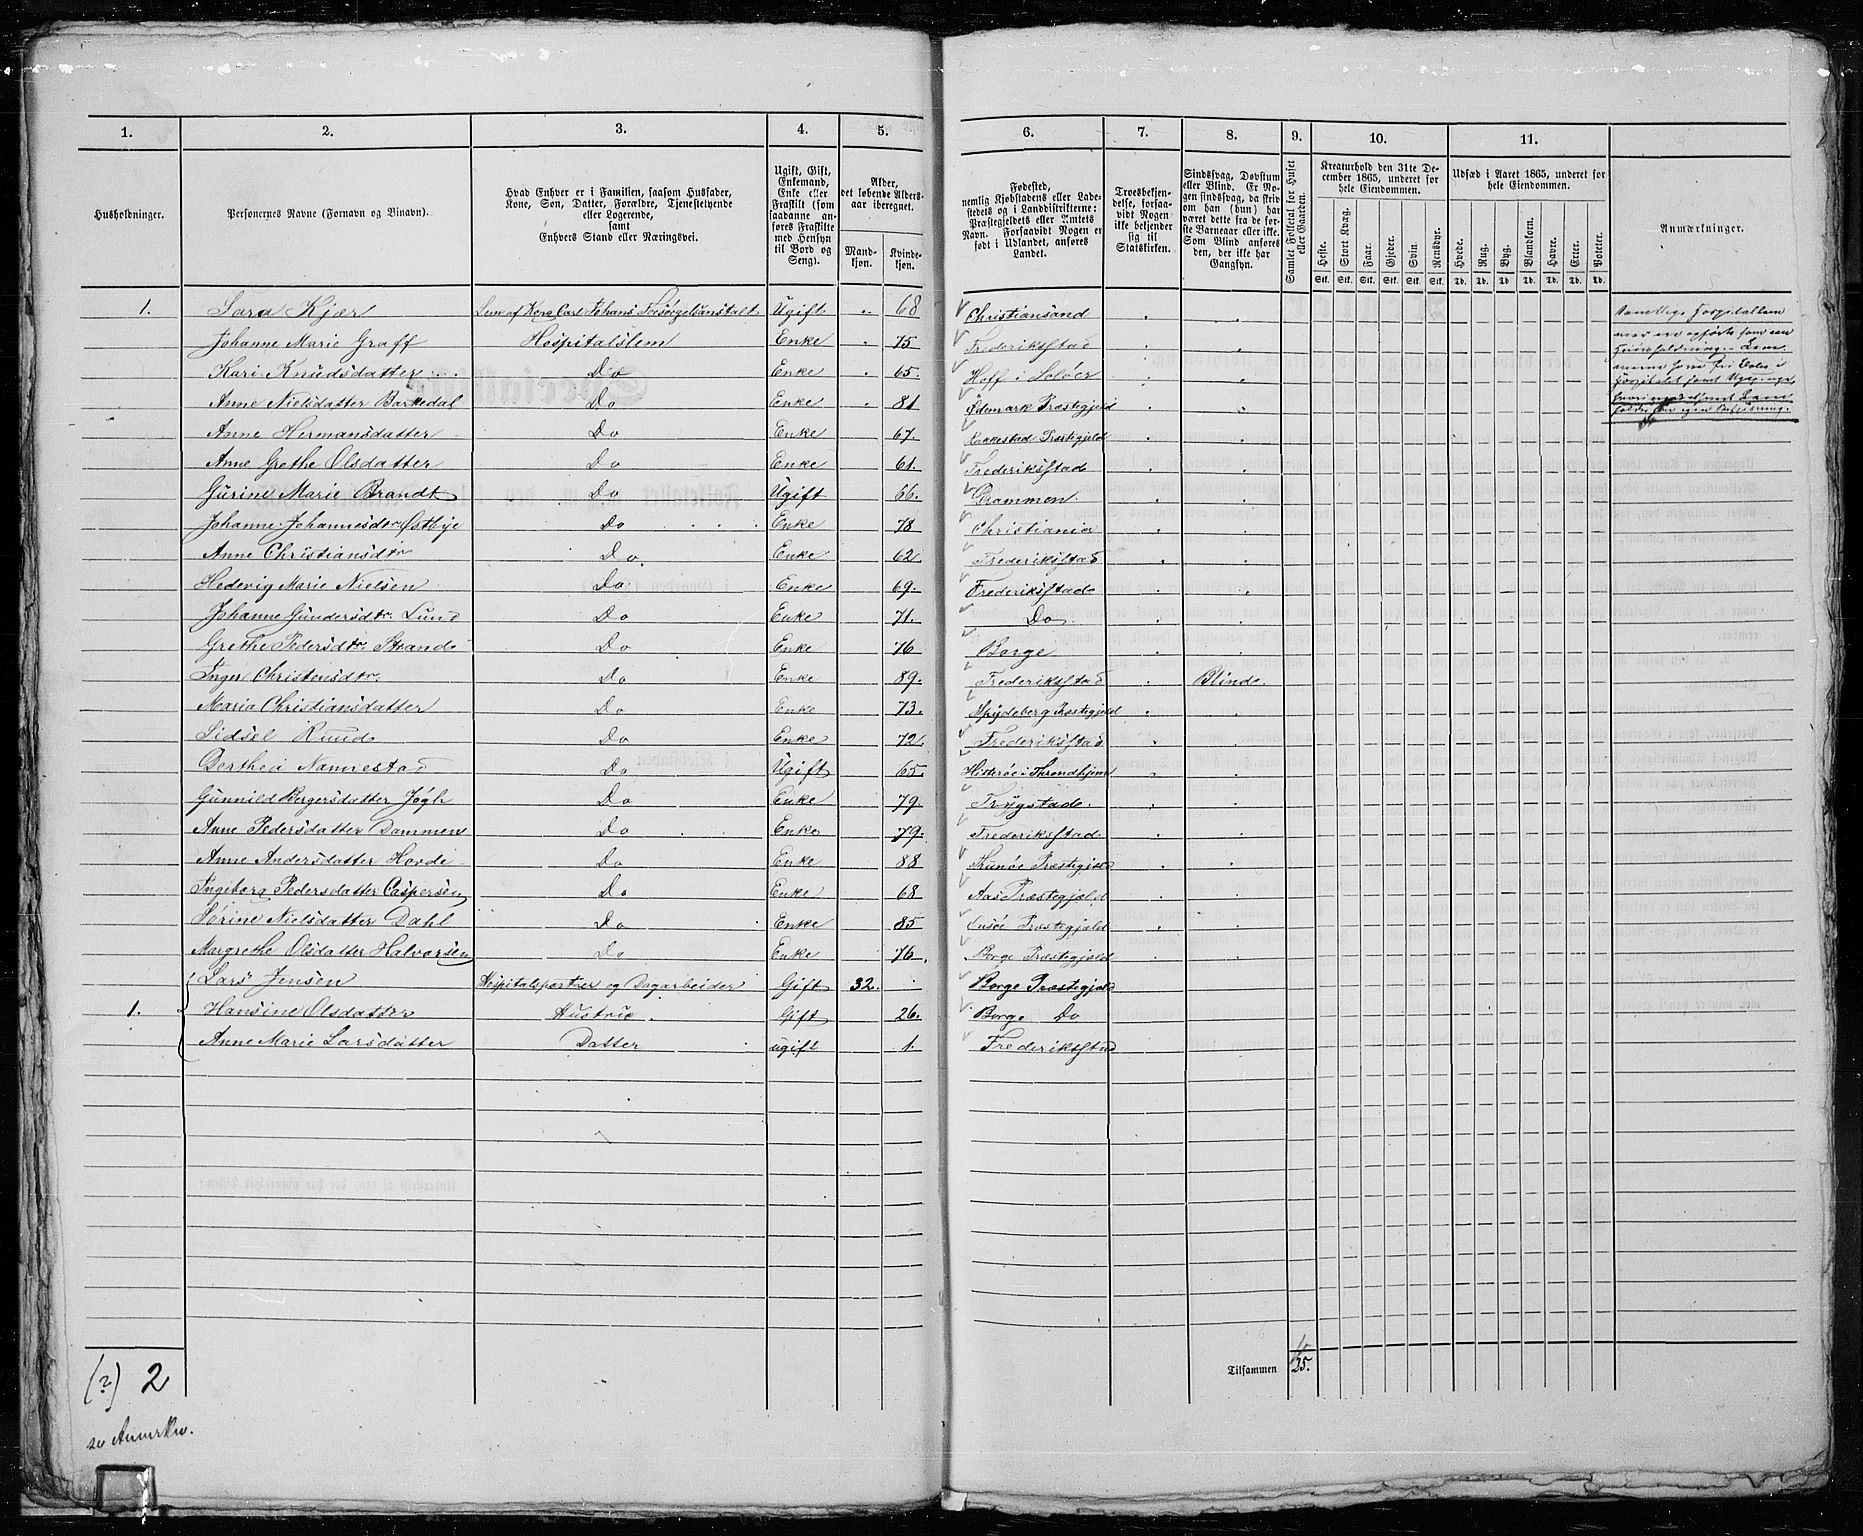 1. 2. 3. 4. 5. 6. 7. 8. 9. 10. 11.
Husholdninger.
Personernes Navne (Fornavn og Binavn).
Hvad Enhver er i Familien, saasom Husfader, Kone, Søn, Datter, Forældre, Tjenestetyende eller Logerende, samt Enhvers Stand eller Næringsvei.
Ugift, Gift, Enkemand, Enke eller Fraskilt (som saadanne anføres Fraskilte med Hensyn til Bord og Seng).
Alder, det løbende Alders-aar iberegnet.
Mand-kjøn. Kvinde-kjøn.
Fødested, nemlig Kjøbstadens eller Ladestedets og i Landdistrikterne: Præstegjeldets eller Amtets Navn. Forsaavidt Nogen er født i Udlandet, anføres Landet.
Troesbekjendelse, forsaavidt Nogen ikke bekjender sig til Statskirken.
Sindssvag, Døvstum eller Blind. Er Nogen sindssvag, da skriv om han (hun) har været dette fra de første Barneaar eller ikke. Som Blind anføres den, der ikke har Gangsyn.
Samlet Folketal for Huset eller Gaarden.
Kreaturhold den 31te December 1865, underet for hele Eiendommen.
Heste. Stort Kvæg. Faar. Gjeder. Svin. Rensdyr.
Stk. Stk. Stk. Stk. Stk. Stk.
Udsæd i Aaret 1865, underet for hele Eiendommen.
Hvede. Rug. Byg. Blandkorn. Havre. Erter. Poteter.
Td. Td. Td. Td. Td. Td. Td.
Anmærkninger.
1. Sara Kjær Lem af Kong Carl Johans Forsørgelsanstalt Ugift 68 Christiansand
Johanne Marie Graff Hospitalslem Enke 75 Frederiksstad
Kari Knudsdatter Do Enke 65. Hoff i Soløer
Anne Nielsdatter Barkedal Do Enke 81 Ødemark Præstegjeld
Anne Hermansdatter Do Enke 67. Rakkestad Præstegjeld
Anne Grethe Olsdatter Do Enke 61. Frederiksstad
Gurine Marie Brandt Do Ugift 66. Drammen.
Johanne Johannesdtr Østbye Do Enke 78 Christiania
Anne Christiansdtr Do. Enke 62. Frederiksstad
Hedevig Marie Nielsen Do Enke 69. Frederiksstad
Johanne Gundersdtr. Lund Do Enke 71. Do
Grethe Pedersdtr. Strand Do Enke 76 Borge
Inger Christensdtr. Do Enke 89. Frederiksstad Blind.
Maria Christiansdatter Do Enke 73. Spydeberg Præstegjeld
Sidsel Ruud Do Enke 72. Frederiksstad
Dorthea Nannestad Do Ugift 65. Hitterøe i Throndhjem
Gunnild Bergersdatter Do Enke 79. Trygstad.
Anne Pedersdatter Dammen Do Enke 79. Frederiksstad
Anne Andersdatter Hovde Do Enke 88 Præstegjeld
Ingeborg Pedersdatter Caspersen Do Enke 68 Aas Præstegjeld
Sørine Nielsdatter Dahl Do Enke 85. Onsøe Præstegjeld
Margrethe Olsdatter Halvorsen Do Enke 76. Borge Præstegjeld
Lars Jensen Hospitalsportner og Dagarbeider Gift 32. Borge Præstegjeld
1. Hansine Olsdatter Hustrue. Gift 26. Borge Do
Anne Marie Larsdatter Datter ugift 1. Frederiksstad
Samtlige Hospitalslem
Tilsammen 25.
(?) 2
se Anmerkn.